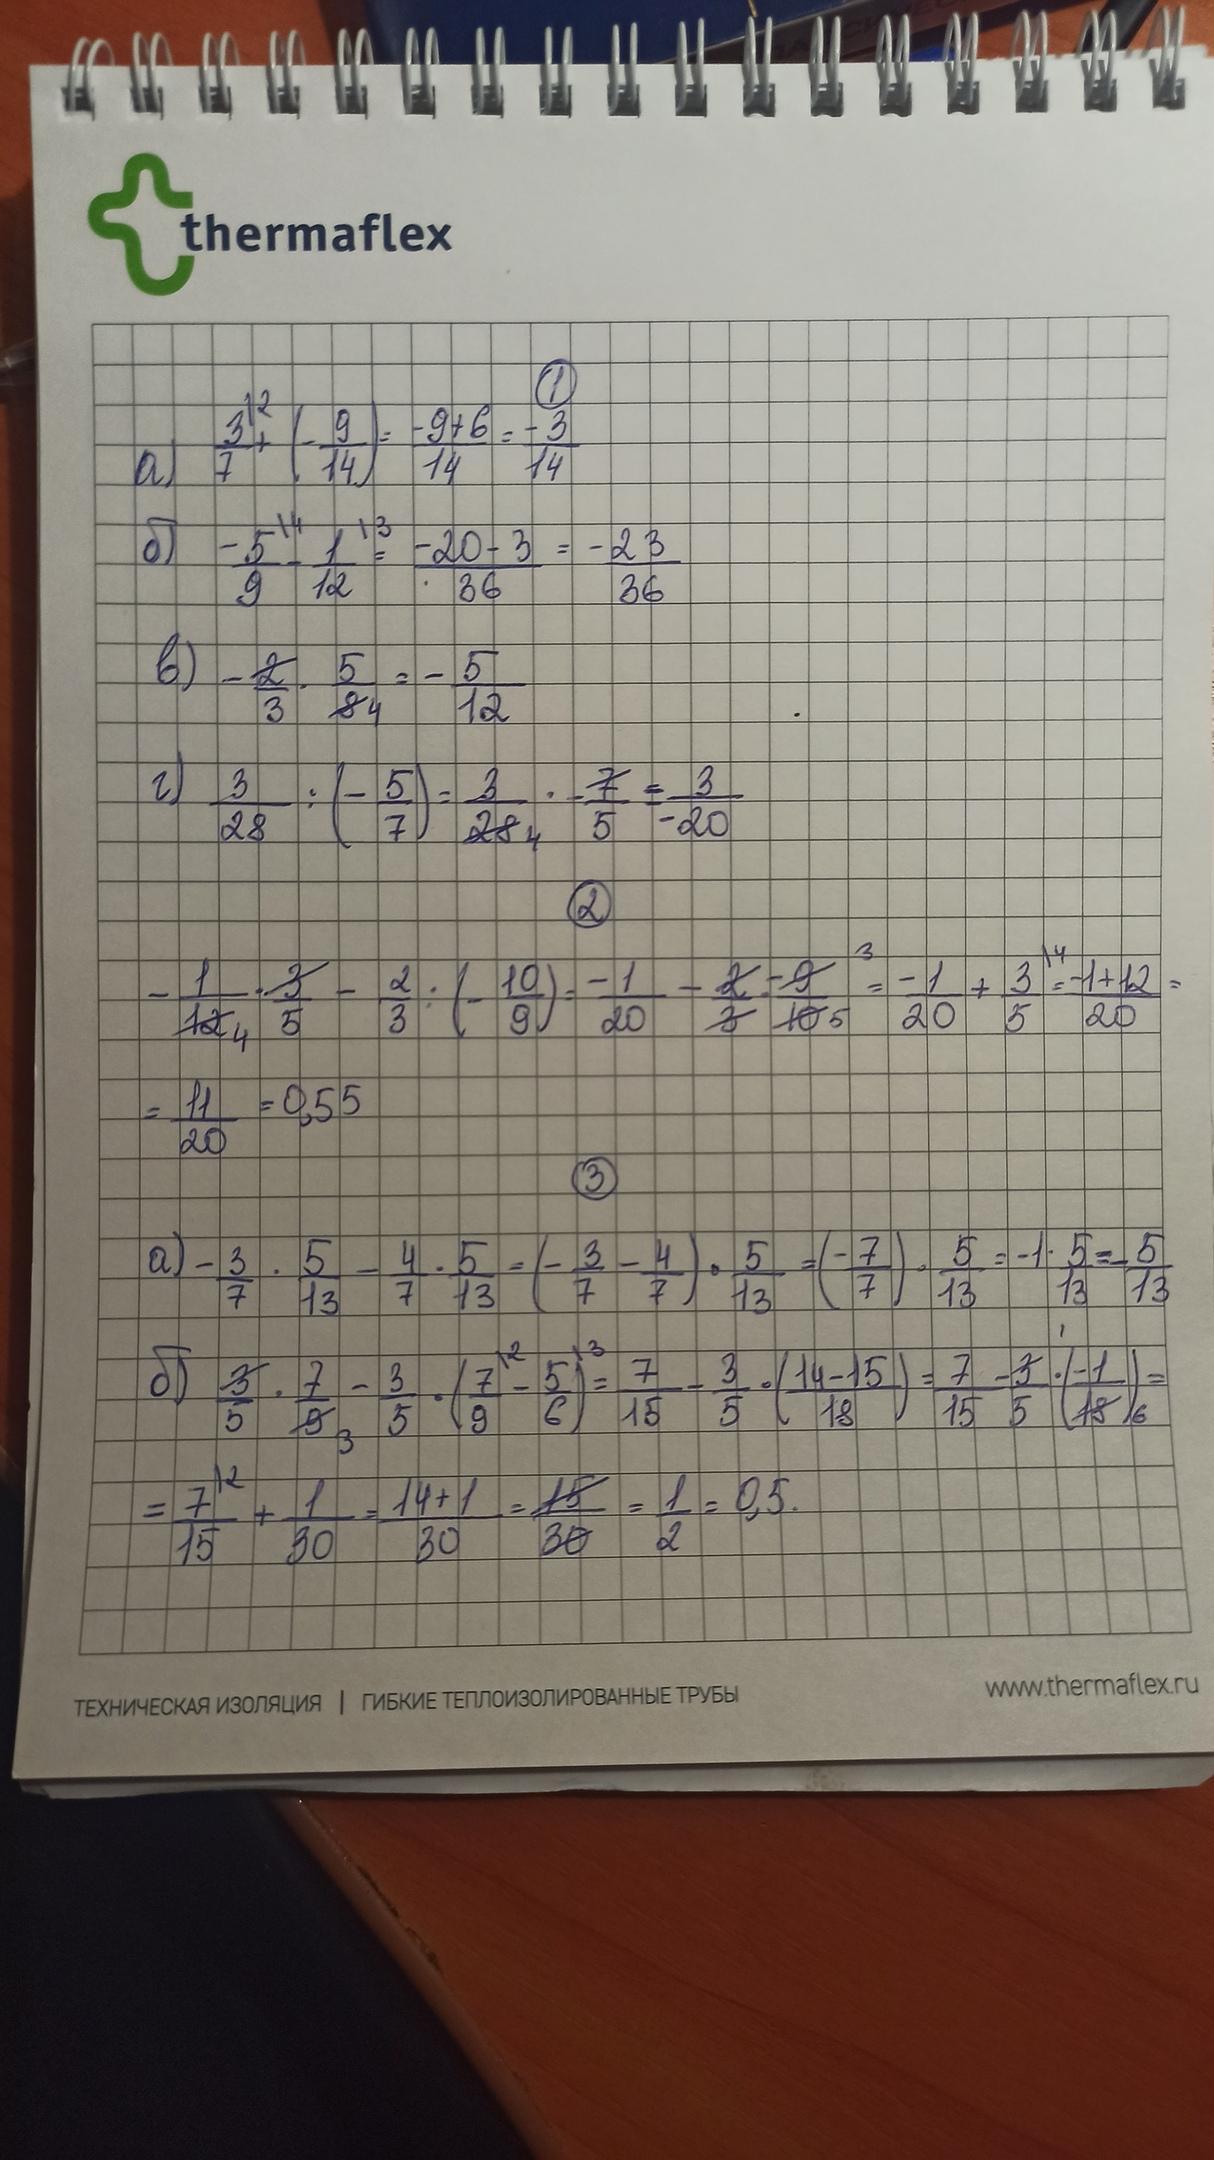 thermaflex
1
а) 3/7\2 + (-9/14) = -9+6/14 = -3/14
б) -5/9\4 - 1/12\3 = -20-3/36 = -23/36
в) -2/3 · 5/84 = -5/12
г) 3/28 : (-5/7) = 3/28 4 · -7/5 = 3/-20
2
-1/12 4 · 3/5 - 2/3 : (-10/9) = -1/20 - 2/3 · -9/10 5 3 = -1/20 + 3/5\4 = -1+12/20 =
= 11/20 = 0,55
3
а) -3/7 · 5/13 - 4/7 · 5/13 = (-3/7 - 4/7) · 5/13 = (-7/7) · 5/13 = -1 · 5/13 = -5/13
б) 3/5 · 7/9 3 - 3/5 · (7/9\2 - 5/6\3) = 7/15 - 3/5 · (14-15/18) = 7/15 - 3/5 · (-1/18) 6 =
= 7/15\2 + 1/30 = 14+1/30 = 15/30 = 1/2 = 0,5.
ТЕХНИЧЕСКАЯ ИЗОЛЯЦИЯ | ГИБКИЕ ТЕПЛОИЗОЛИРОВАННЫЕ ТРУБЫ
www.thermaflex.ru